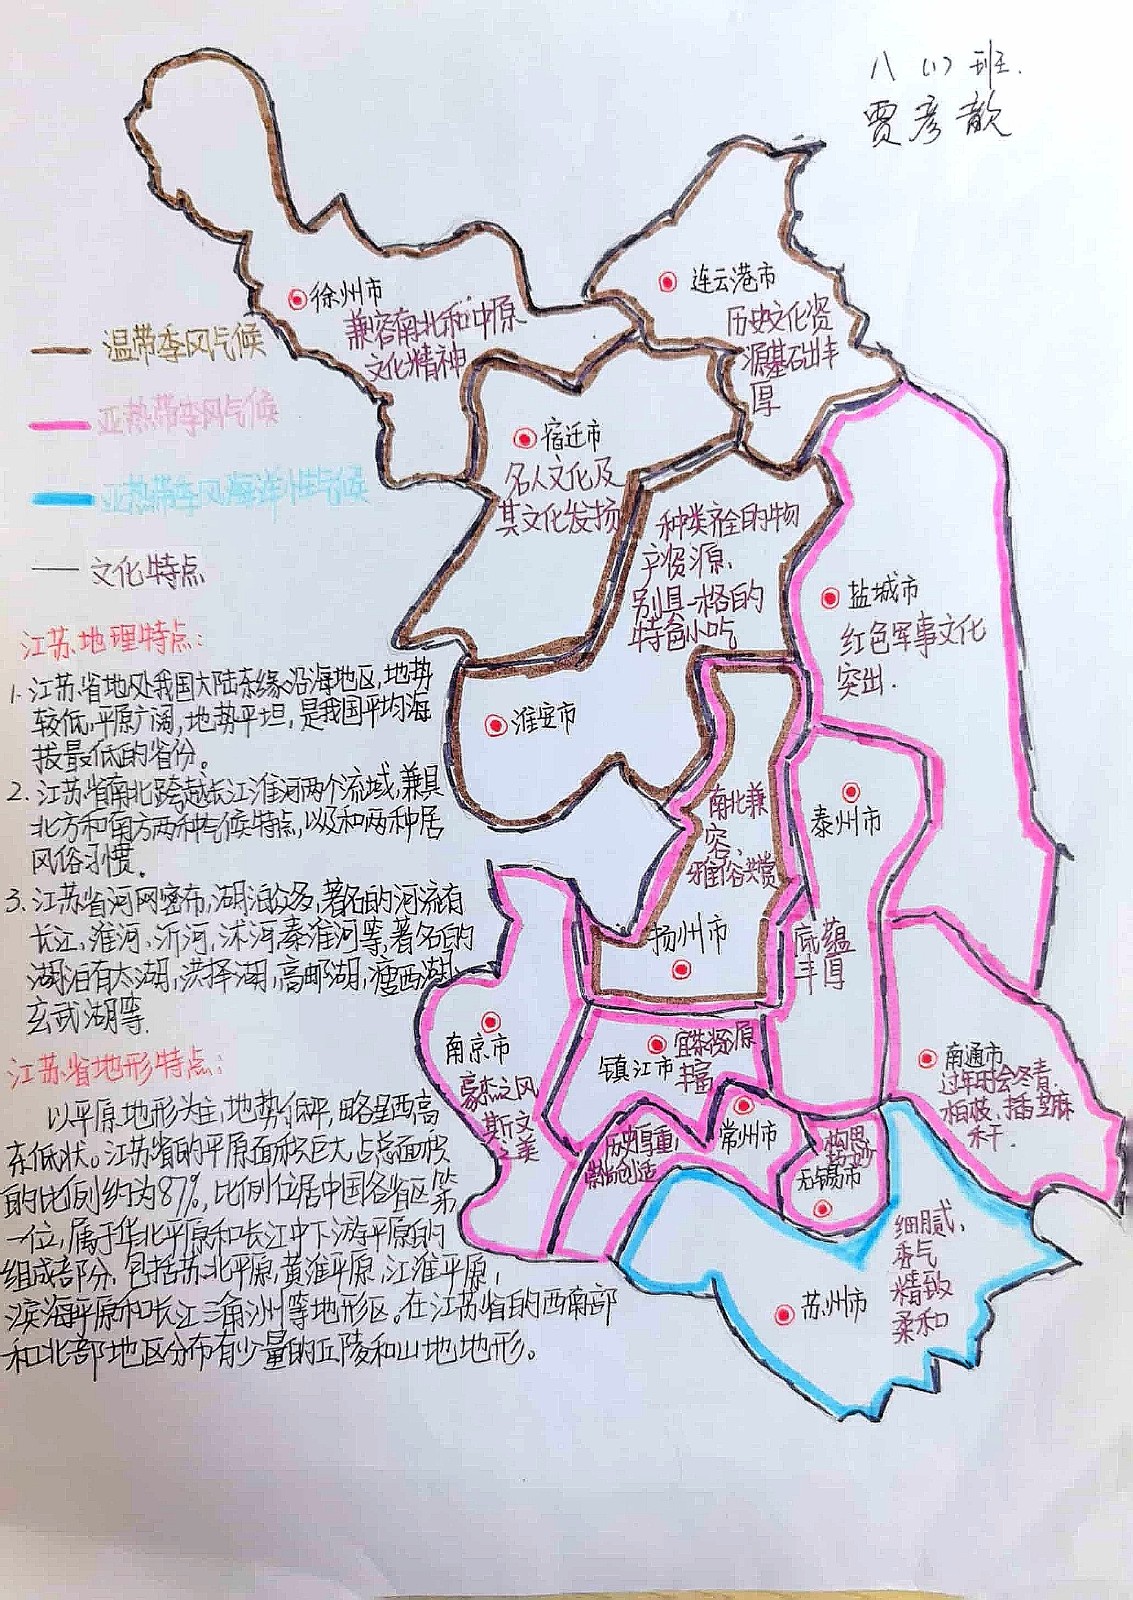 八（1）班.
贾彦歆
徐州市
兼容南北和中原
文化精神
连云港市
历史文化资
源基础丰
厚
温带季风气候
亚热带季风气候
亚热带季风海洋性气候
文化特点
宿迁市
名人文化及
其文化发扬
种类齐全的物
产资源.
别具一格的
特色小吃
淮安市
盐城市
红色军事文化
突出.
江苏地理特点:
1.江苏省地处我国大陆东缘沿海地区,地势
较低,平原广阔,地势平坦,是我国平均海
拔最低的省份。
2.江苏省南北跨越长江淮河两个流域,兼具
北方和南方两种气候特点,以及和两种居
风俗习惯。
3.江苏省河网密布,湖泊众多,著名的河流有
长江、淮河、沂河、沭河,秦淮河等,著名的
湖泊有太湖,洪择湖,高邮湖,瘦西湖,
玄武湖等.
江苏省地形特点:
以平原地形为主,地势低平,略呈西高
东低状。江苏省的平原面积巨大,占总面积
的比例约为87%,比例位居中国各省区第
一位,属于华北平原和长江中下游平原的
组成部分,包括苏北平原,黄淮平原,江淮平原,
滨海平原和长江三角洲等地形区。在江苏省的西南部
和北部地区分布有少量的丘陵和山地地形。
南北兼
容,
雅俗共赏
扬州市
泰州市
底蕴
丰厚
南京市
豪杰之风
斯文
之美
镇江市
资源
丰富
南通市
过年时会冬青,
柏枝、插芝麻
禾干.
常州市
历史厚重,
崇尚创造
构思
无锡市
苏州市
细腻,
秀气
精致
柔和